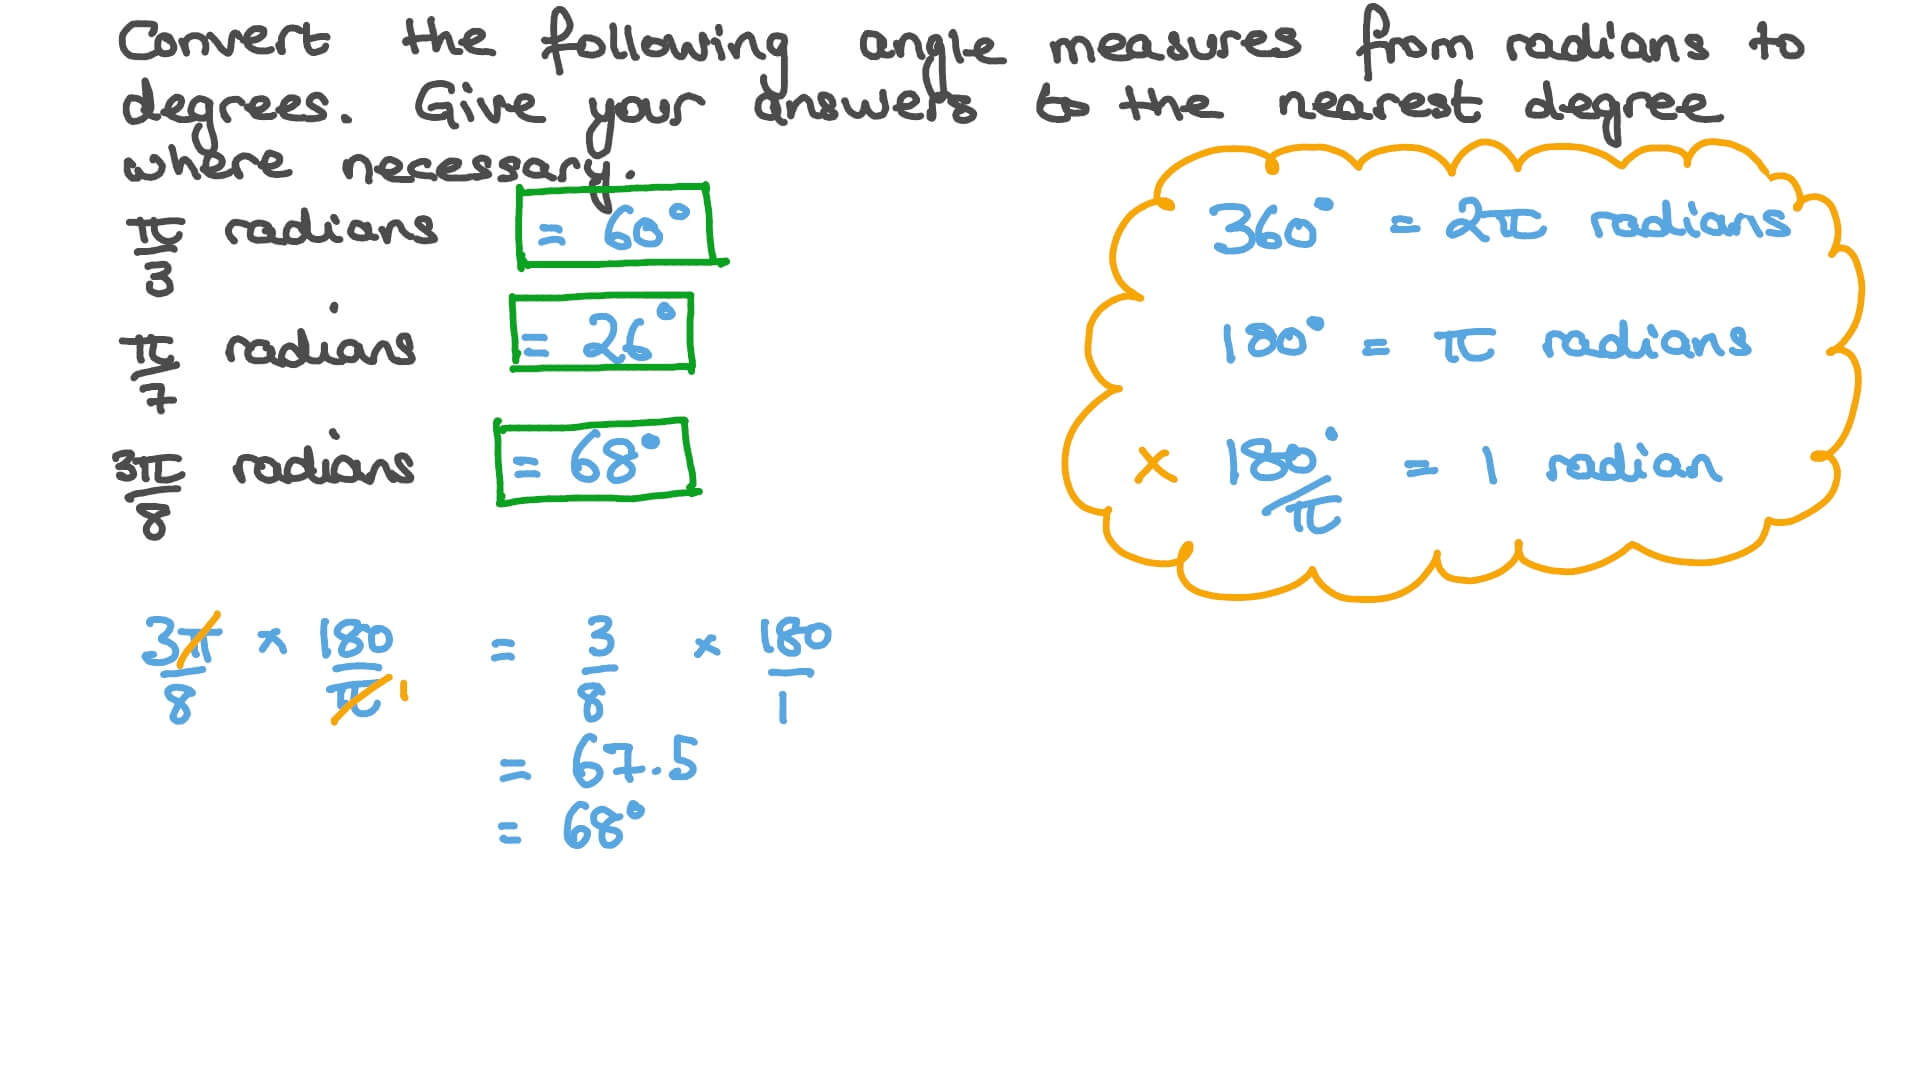 Convert the following angle measures from radians to
degrees. Give your answers to the nearest degree
where necessary.
π/3 radians = 60°
π/7 radians = 26°
3π/8 radians = 68°
360° = 2π radians
180° = π radians
× 180°/π = 1 radian
3π/8 × 180/π 1 = 3/8 × 180/1
= 67.5
= 68°